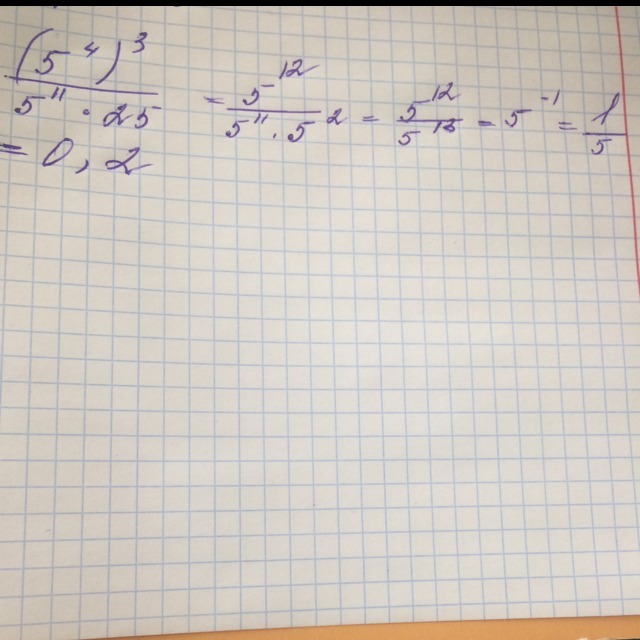 (5^4)^3 / 5^11 · 25 = 5^12 / 5^11 · 5^2 = 5^12 / 5^13 = 5^-1 = 1/5
= 0,2